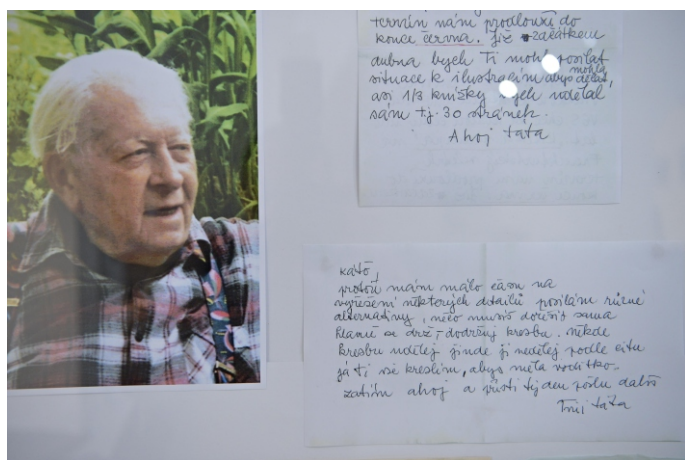 termín nám prodlouží do
konce června. Již začátkem
dubna bych Ti mohl posílat
situace k ilustracím abys mohla dělat,
asi 1/3 knížky bych udělal
sám tj. 30 stránek.
Ahoj táta
Kátô,
protože mám málo času na
vyřešení některých detailů posílám různé
alternativy, něco musíš dořešit sama
Hlavně se drž - dodržuj kresbu. někde
kresbu udělej jinde ji nedělej podle citu
já ti vše kreslím, abys měla vodítko.
zatím ahoj a příští týden pošlu další
Tvůj táta